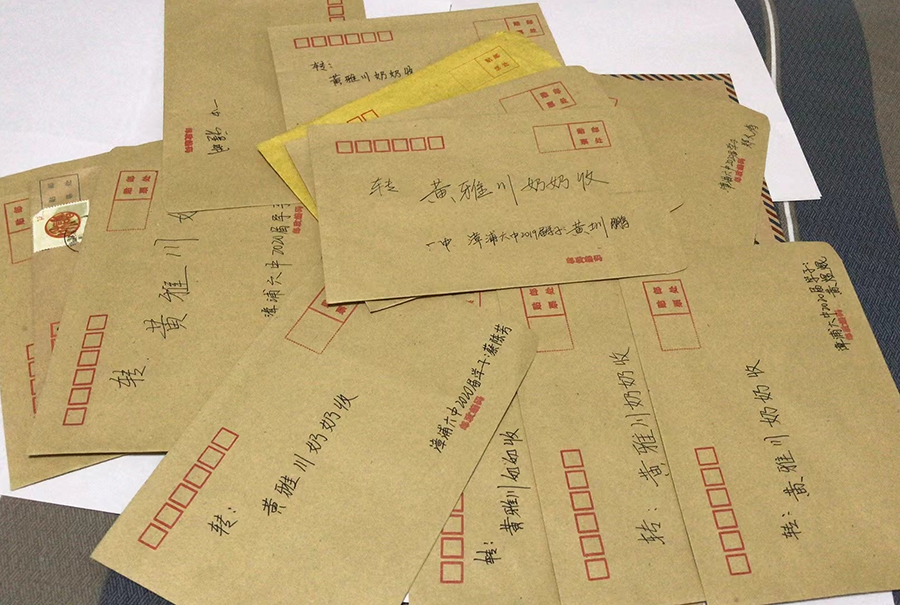 转：
黄雅川奶奶收
贴邮
票处
转 黄雅川奶奶收
一中 漳浦六中2019届学子：黄圳鹏
邮政编码
贴邮
票处
转：黄雅川
漳浦六中2020届学
贴邮
票处
转：黄雅川奶奶收
漳浦六中2020届学子：蔡陈芳
邮政编码
转：黄雅川奶奶收
贴邮
票处
转：黄雅川奶奶收
贴邮
票处
转：黄雅川奶奶收
漳浦六中2020届学子：
邮政编码
邮政编码
邮政编码